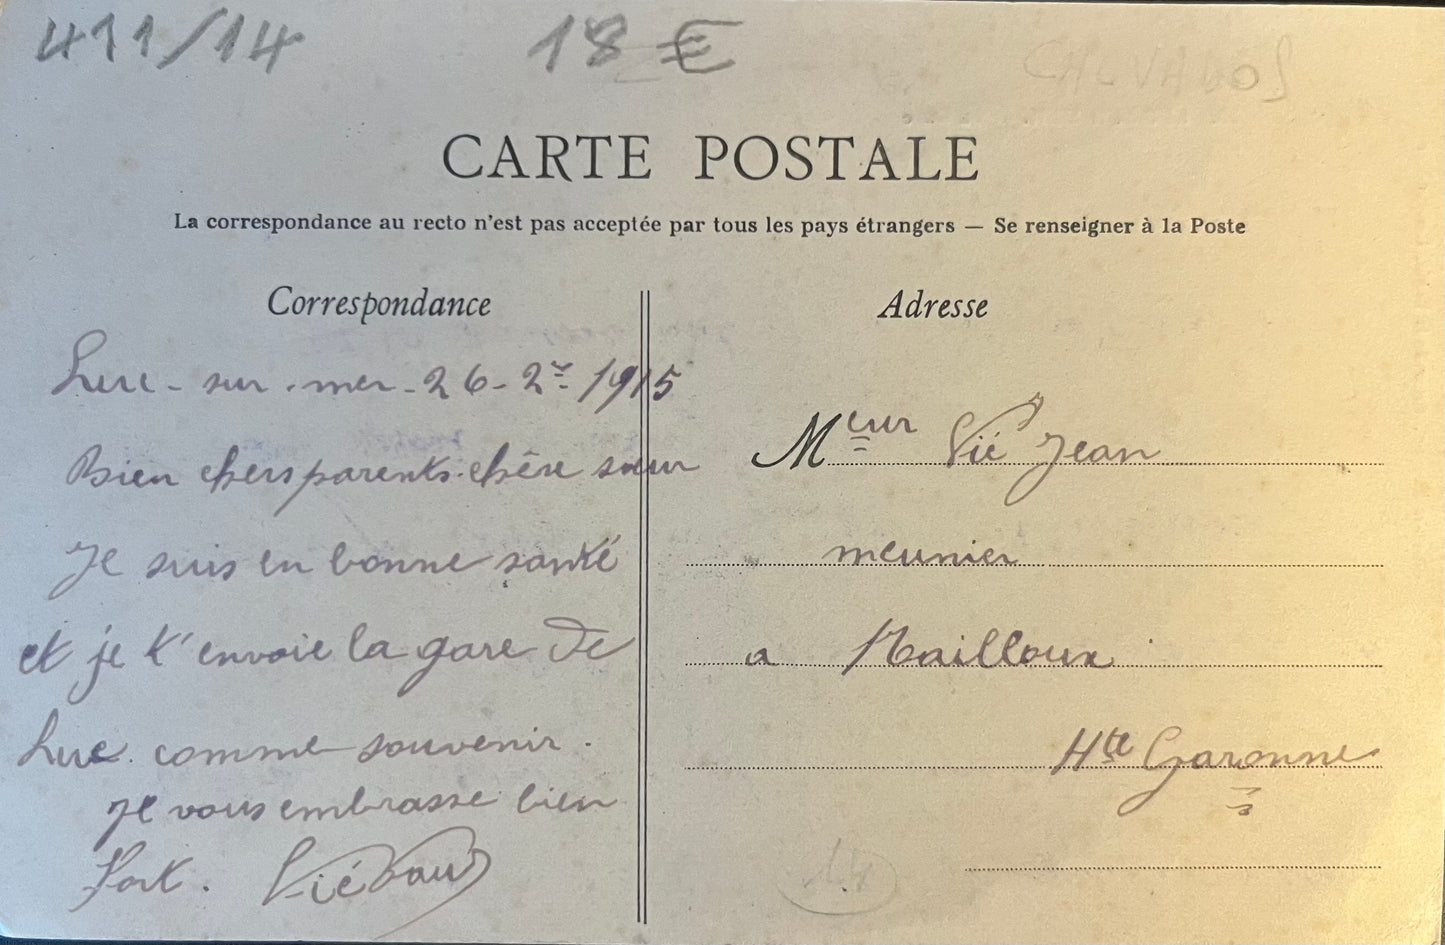 411/14 18 €
CALVADOS
CARTE POSTALE
La correspondance au recto n'est pas acceptée par tous les pays étrangers — Se renseigner à la Poste
Correspondance
Luc - sur - mer - 26 - 2r 1915
Bien chers parents chère sœur
Je suis en bonne santé
et je t'envoie la gare de
Luc comme souvenir.
Je vous embrasse bien
fort. Vié
Adresse
Meur Vié Jean
meunier
a Nailloux
Hte Garonne
14